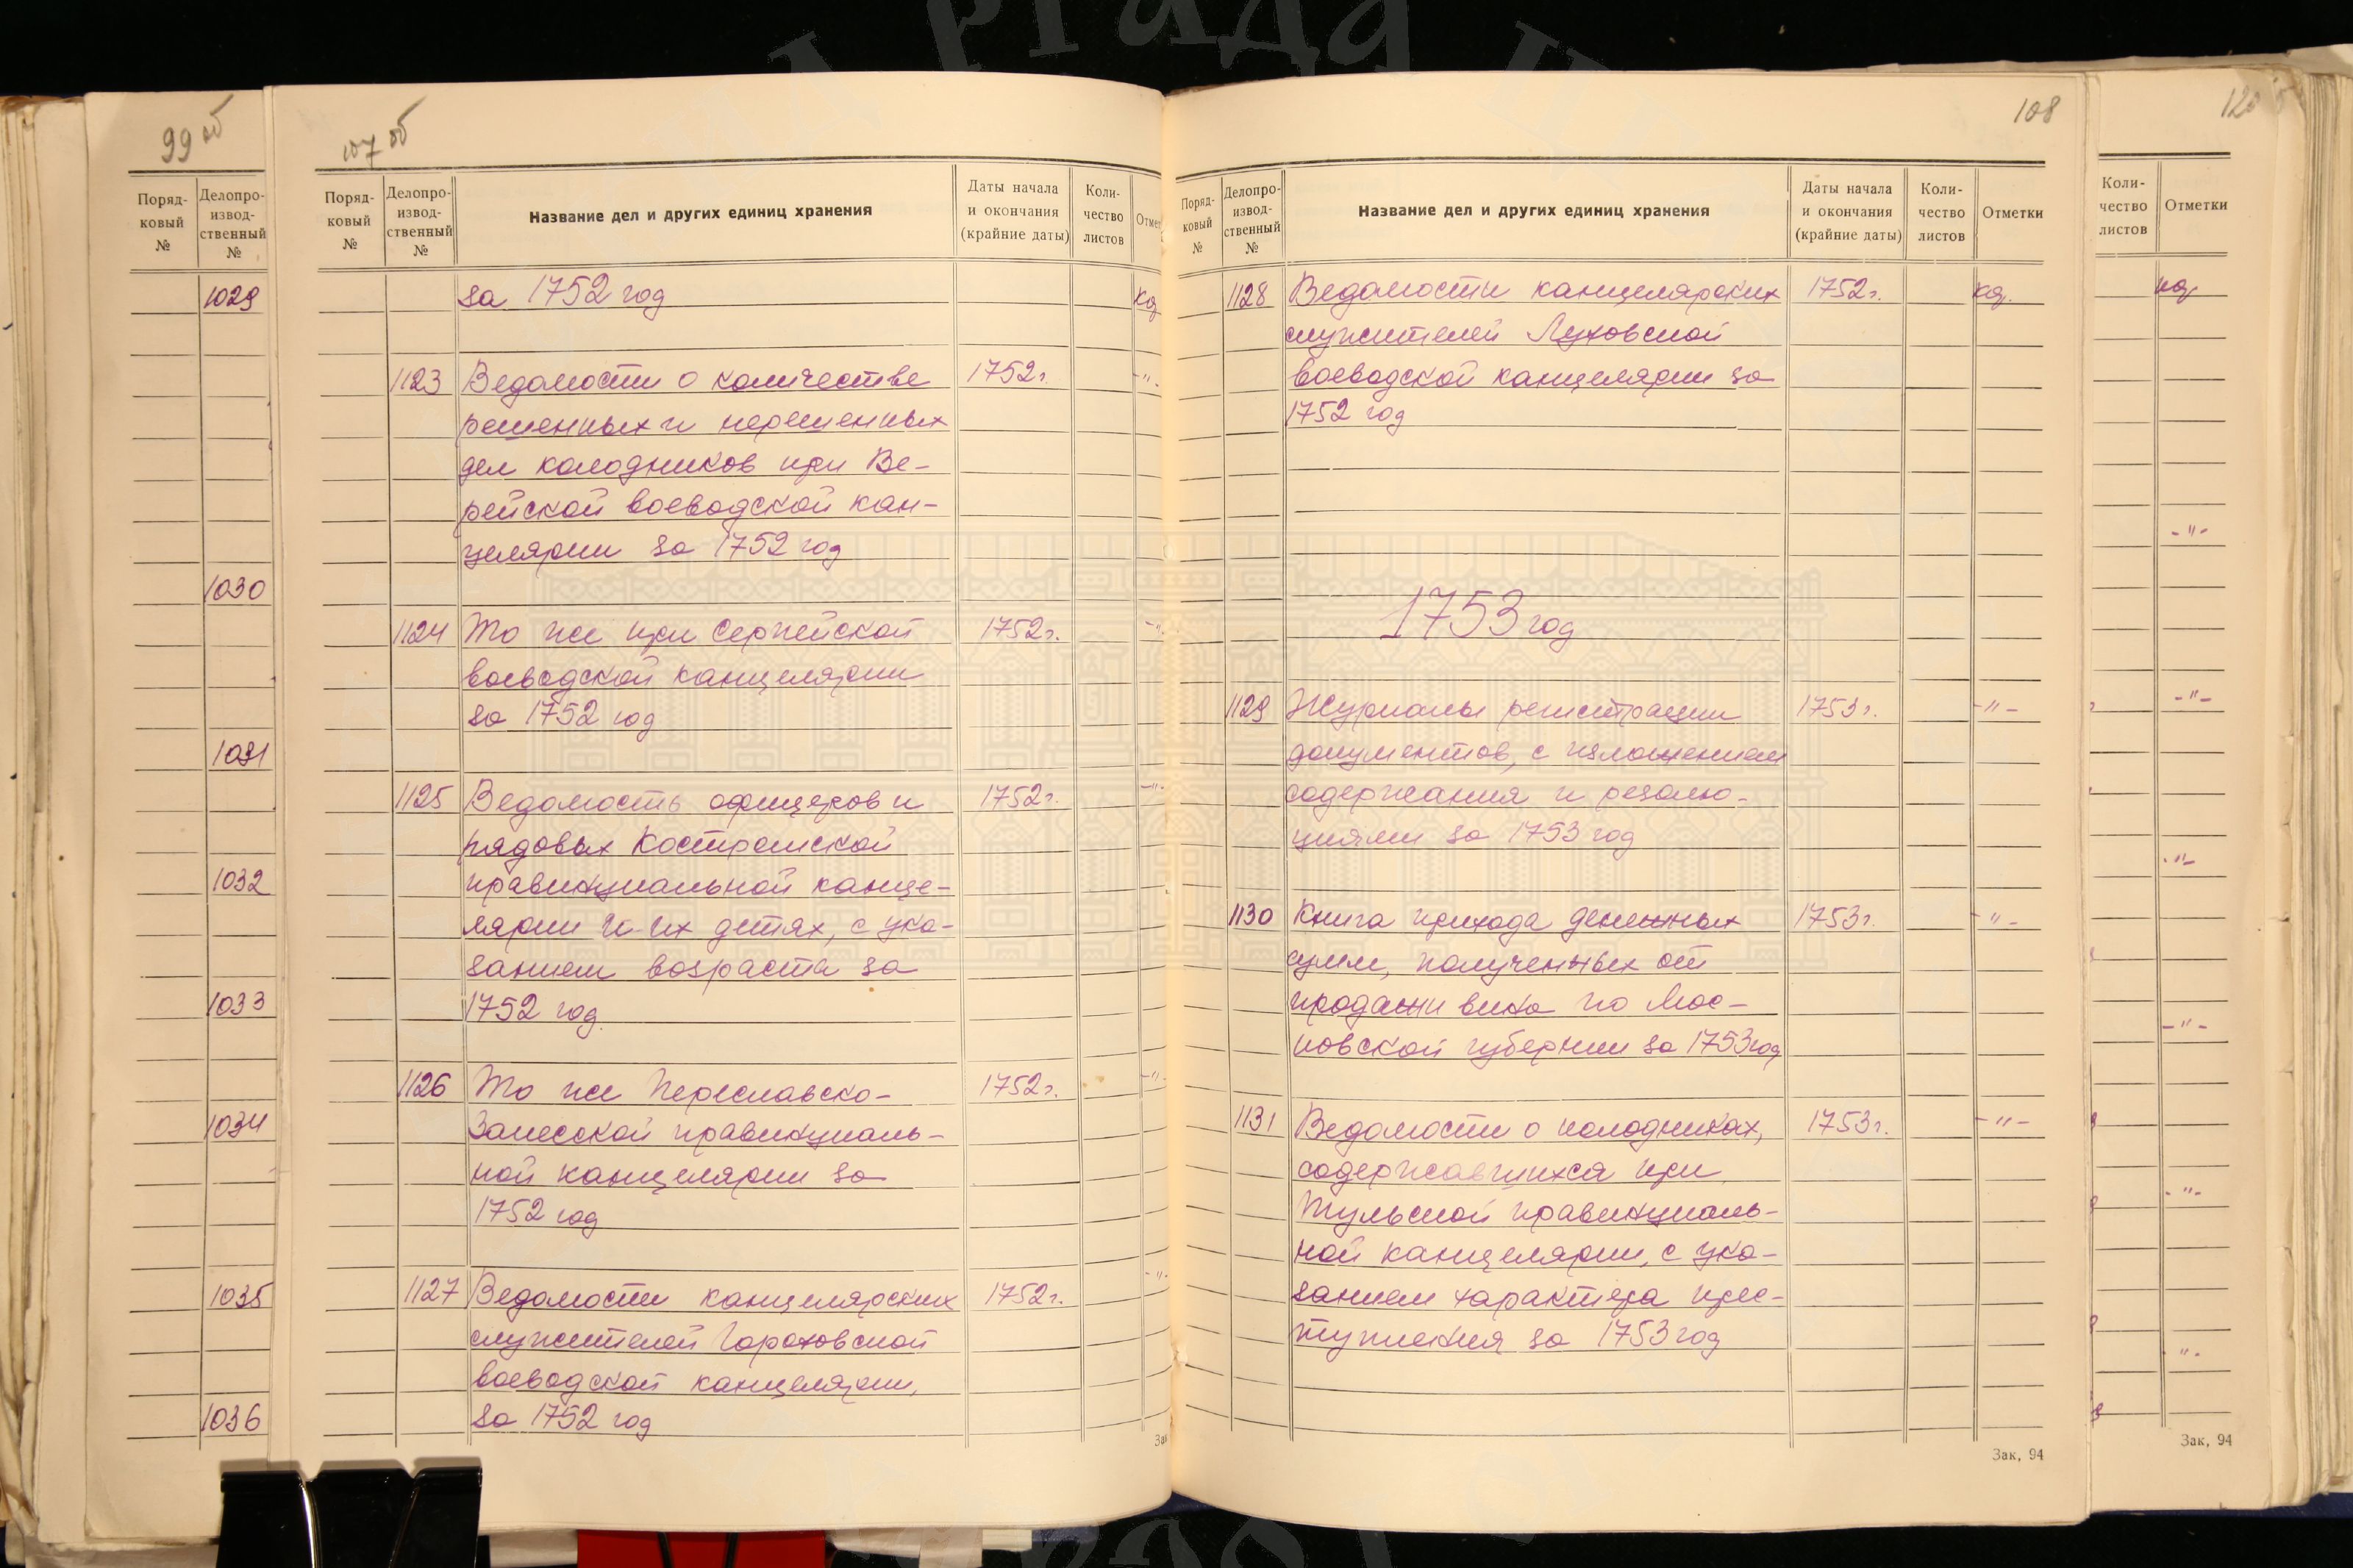 99 об
Поряд-
ковый
№
Делопро-
извод-
ственный
№
1029
1030
1031
1032
1033
1034
1035
1036
107 об
Поряд-
ковый
№
Делопро-
извод-
ственный
№
Название дел и других единиц хранения
Даты начала
и окончания
(крайние даты)
Коли-
чество
листов
за 1752 год
1123 Ведомости о количестве 1752 г. -"-
решенных и нерешенных
дел колодников при Ве-
рейской воеводской кан-
целярии за 1752 год
1124 То же при Серпейской 1752 г. -"-
воеводской канцелярии
за 1752 год
1125 Ведомость офицеров и 1752 г. -"-
рядовых Костромской
провинциальной канце-
лярии и их детях, с ука-
занием возраста за
1752 год
1126 То же Переславско- 1752 г. -"-
Залесской провинциаль-
ной канцелярии за
1752 год
1127 Ведомости канцелярских 1752 г. -"-
служителей Гороховской
воеводской канцелярии,
за 1752 год
108
Поряд-
ковый
№
Делопро-
извод-
ственный
№
Название дел и других единиц хранения
Даты начала
и окончания
(крайние даты)
Коли-
чество
листов
Отметки
1128 Ведомости канцелярских 1752 г.
служителей Луховской
воеводской канцелярии за
1752 год
1753 год
1129 Журналы регистрации 1753 г. -"-
документов, с изложением
содержания и резолю-
циями за 1753 год
1130 Книга прихода денежных 1753 г. -"-
сумм, полученных от
продажи вина по Мос-
ковской губернии за 1753 год
1131 Ведомости о колодниках, 1753 г. -"-
содержавшихся при
Тульской провинциаль-
ной канцелярии, с ука-
занием характера прес-
тупления за 1753 год
Зак. 94
Коли-
чество
листов
Отметки
-"-
-"-
-"-
-"-
-"-
-"-
Зак. 94